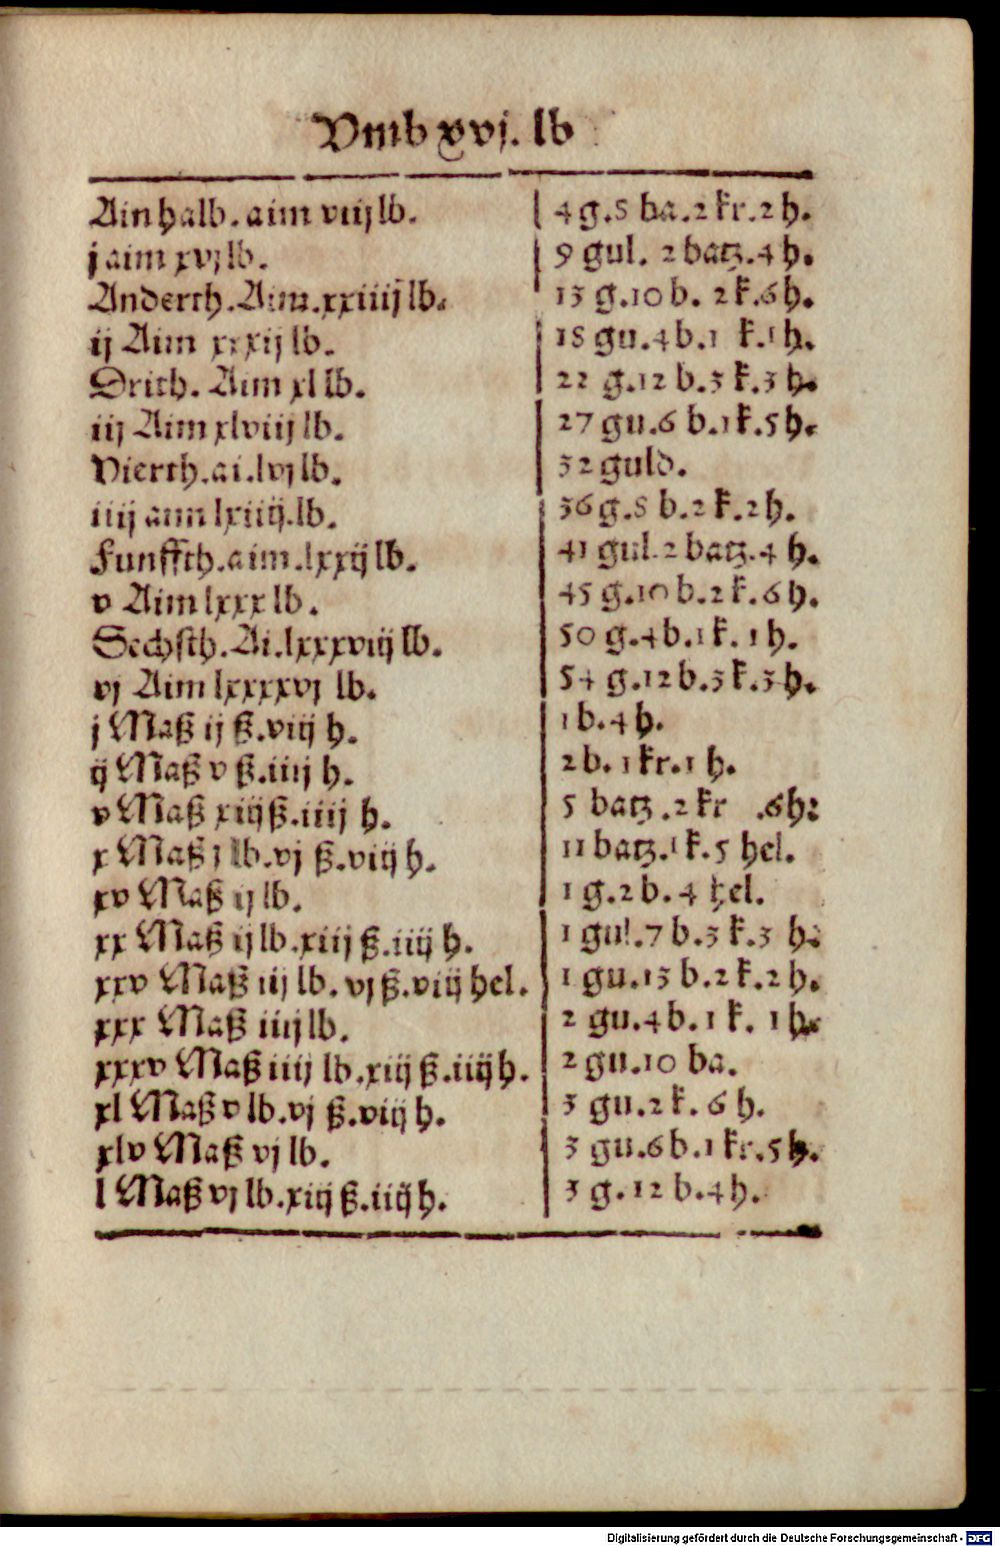 Vmb xvj. lb
Ain halb. aim viijlb. 4 g. 8 ba. 2 kr. 2 h.
j aim xvjlb. 9 gul. 2 batz. 4 h.
Anderth. Aim. xxiiijlb. 13 g. 10 b. 2 k. 6 h.
ij Aim xxxij lb. 18 gu. 4 b. 1 k. 1 h.
Drith. Aim xl lb. 22 g. 12 b. 3 k. 3 h.
iij Aim xlviij lb. 27 gu. 6 b. 1 k. 5 h.
Vierth. ai. lvj lb. 32 guld.
iiij aim lxiiij. lb. 36 g. 8 b. 2 k. 2 h.
Funffth. aim. lxxij lb. 41 gul. 2 batz. 4 h.
v Aim lxxx lb. 45 g. 10 b. 2 k. 6 h.
Sechsth. Ai. lxxxviij lb. 50 g. 4 b. 1 k. 1 h.
vj Aim lxxxxvj lb. 54 g. 12 b. 3 k. 3 h.
j Maß ij ß. viij h. 1 b. 4 h.
ij Maß v ß. iiij h. 2 b. 1 kr. 1 h.
v Maß xiij ß. iiij h. 5 batz. 2 kr .6 h:
x Maß j lb. vj ß. viij h. 11 batz. 1 k. 5 hel.
xv Maß ij lb. 1 g. 2 b. 4 hel.
xx Maß ij lb. xiij ß. iiij h. 1 gul. 7 b. 3 k. 3 h.
xxv Maß iij lb. vj ß. viij hel. 1 gu. 13 b. 2 k. 2 h.
xxx Maß iiij lb. 2 gu. 4 b. 1 k. 1 h.
xxxv Maß iiij lb. xiij ß. iiij h. 2 gu. 10 ba.
xl Maß v lb. vj ß. viij h. 3 gu. 2 k. 6 h.
xlv Maß vj lb. 3 gu. 6 b. 1 kr. 5 h.
l Maß vj lb. xiij ß. iiij h. 3 g. 12 b. 4 h.
Digitalisierung gefördert durch die Deutsche Forschungsgemeinschaft - DFG